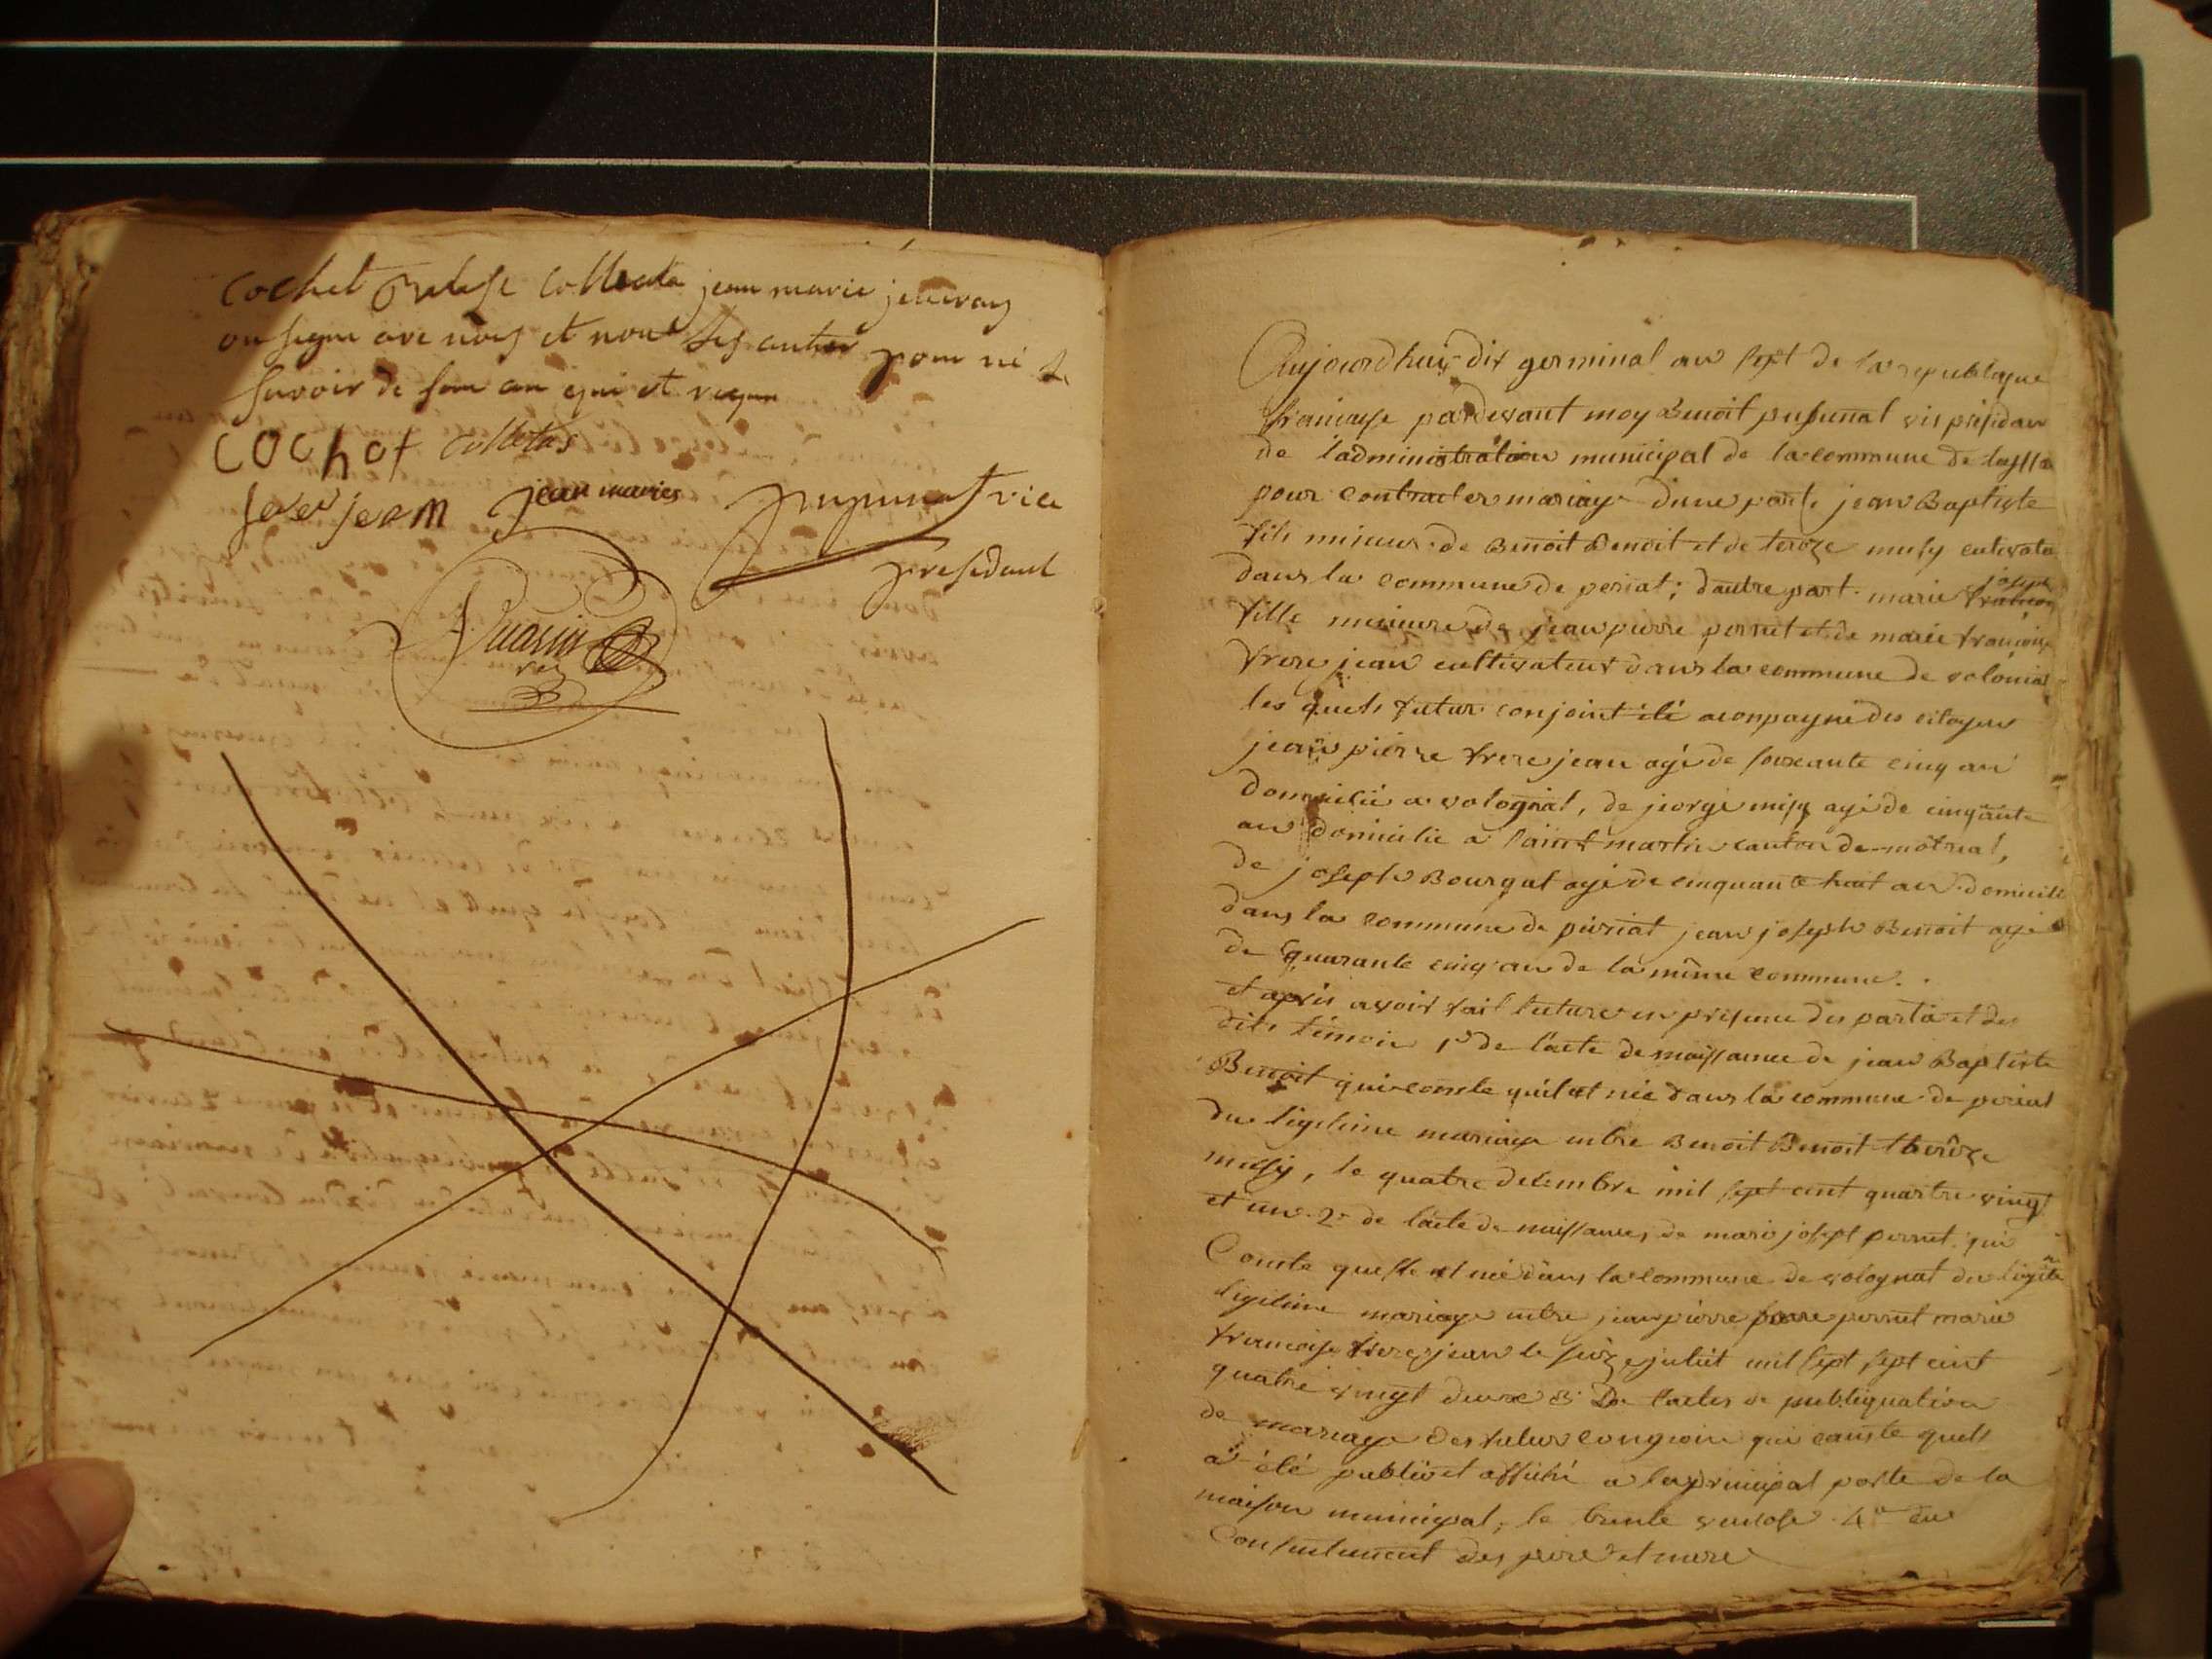 cochet collecta jean marie jeneray
on signe ave nous et non les autre pour ne le
savoir de som an qui et requn
cochot colletas
jean jean maries pupunat vice
presidant
Aujourdhuiy dix germinal an sept de la republique
francaise pardevant moy Benoit pupunat vis presidan
de l'administration municipal de la commune de
pour contracter mariage dune part jean Baptiste
fils mineur de Benoit Benoit et de tereze musy cultivate
dans la commune de periat; dautre part marie joseph
fille mineure de jean pierre perret et de marie francoise
frere jean cultivateur dans la commune de volonia
les quels futur conjoint été aconpagné des citoyens
jean pierre frere jean agé de soixante cinq an
domicilié a volognat, de jeorge misy agé de cinquante
an domicilie a saint martin canton de môtreal,
de joseph Bourgat agé de cinquante huit an domicile
dans la commune de peiriat jean joseph Benoit agé
de quarante cinq an de la même commune.
et après avoir fait lecture en presence des partie et des
dits témoin 1° de l'acte de naissance de jean Baptiste
Benoit qui conste quil et née dans la commune de periat
du ligitime mariage entre Benoit Benoit theréze
musy, le quatre decembre mil sept cent quartre vingt
et un 2° de lacte de naissances de mari josept perret qui
Conste quelle et née dans la commune de volognat du
ligitime mariage entre jean pierre perret marie
francoise frere jean le seize juliet mil sept sept cent
quatre vingt deux 3° De l'actes de publiquation
de mariage des futur congoin qui conste quels
a été publié et affiché a la principal porte de la
maison municipal, le trente ventose 4° du
Consentement des pere et mere